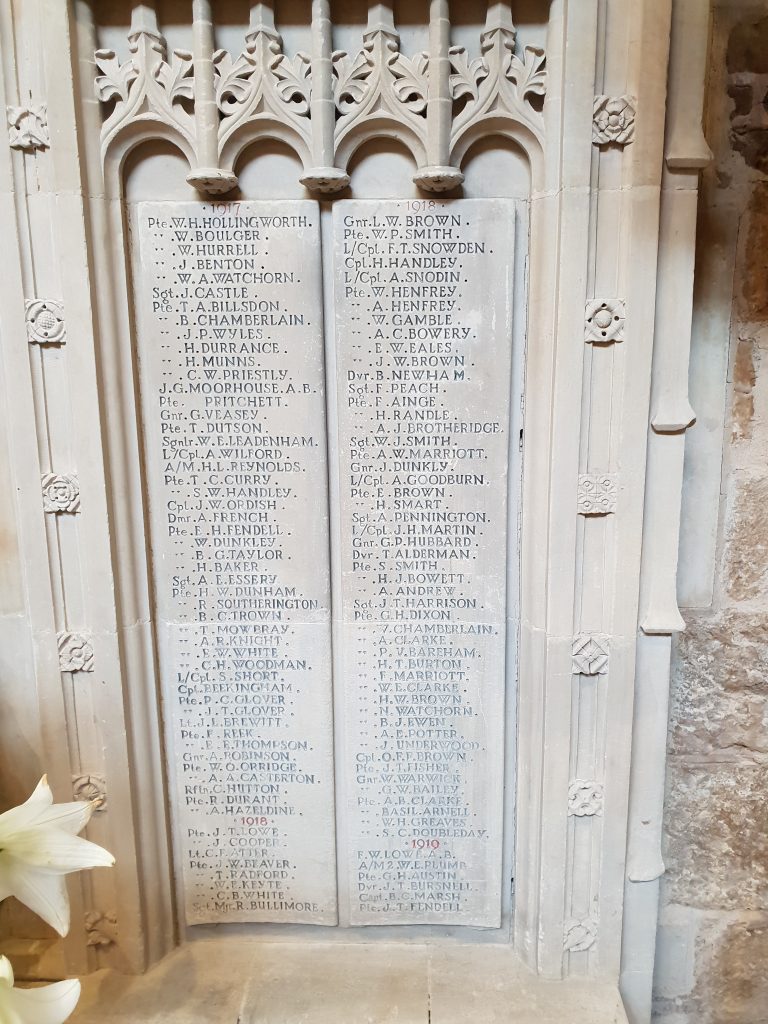 ·1917·
Pte.W.H.HOLLINGWORTH.
" .W.BOULGER.
" .W.HURRELL.
" .J.BENTON.
" .W.A.WATCHORN.
Sgt.J.CASTLE.
Pte.T.A.BILLSDON.
" .B.CHAMBERLAIN.
" .J.P.WYLES.
" .H.DURRANCE.
" .H.MUNNS.
" .C.W.PRIESTLY.
J.G.MOORHOUSE.A.B.
Pte. PRITCHETT.
Gnr.G.VEASEY.
Pte.T.DUTSON.
Sgnlr.W.E.LEADENHAM.
L/Cpl.A.WILFORD.
A/M.H.L.REYNOLDS.
Pte.T.C.CURRY.
" .S.W.HANDLEY.
Cpl.J.W.ORDISH.
Dmr.A.FRENCH.
Pte.E.H.FENDELL.
" .W.DUNKLEY.
" .B.G.TAYLOR.
" .H.BAKER.
Sgt.A.E.ESSERY.
Pte.H.W.DUNHAM.
" .R.SOUTHERINGTON.
" .B.C.TROWN.
" .T.MOWBRAY.
" .A.R.KNIGHT.
" .E.W.WHITE.
" .C.H.WOODMAN.
L/Cpl.S.SHORT.
Cpl.BEEKINGHAM.
Pte.P.C.GLOVER.
" .J.T.GLOVER.
Lt.J.L.BREWITT.
Pte.F.REEK.
" .E.E.THOMPSON.
Gnr.A.ROBINSON.
Pte.W.O.ORRIDGE.
" .A.A.CASTERTON.
Rfln.C.HUTTON.
Pte.R.DURANT.
" .A.HAZELDINE.
·1918·
Pte.J.T.LOWE.
" .J.COOPER.
Lt.C.F.ATTER.
Pte.J.W.BEAVER.
" .T.RADFORD.
" .W.E.KEYTE.
" .C.B.WHITE.
Sgt.Mjr.R.BULLIMORE.
·1918·
Gnr.L.W.BROWN.
Pte.W.P.SMITH.
L/Cpl.F.T.SNOWDEN.
Cpl.H.HANDLEY.
L/Cpl.A.SNODIN.
Pte.W.HENFREY.
" .A.HENFREY.
" .W.GAMBLE.
" .A.C.BOWERY.
" .E.W.EALES.
" .J.W.BROWN.
Dvr.B.NEWHAM.
Sgt.F.PEACH.
Pte.F.AINGE.
" .H.RANDLE.
" .A.J.BROTHERIDGE.
Sgt.W.J.SMITH.
Pte.A.W.MARRIOTT.
Gnr.J.DUNKLY.
L/Cpl.A.GOODBURN.
Pte.E.BROWN.
" .H.SMART.
Sgt.A.PENNINGTON.
L/Cpl.J.H.MARTIN.
Gnr.G.P.HUBBARD.
Dvr.T.ALDERMAN.
Pte.S.SMITH.
" .H.J.BOWETT.
" .A.ANDREW.
Sgt.J.T.HARRISON.
Pte.G.H.DIXON.
" .W.CHAMBERLAIN.
" .A.CLARKE.
" .P.V.BAREHAM.
" .H.T.BURTON.
" .F.MARRIOTT.
" .W.E.CLARKE.
" .H.W.BROWN.
" .N.WATCHORN.
" .B.J.EWEN.
" .A.E.POTTER.
" .J.UNDERWOOD.
Cpl.O.F.F.BROWN.
Pte.J.T.FISHER.
Gnr.W.WARWICK.
" .G.W.BAILEY.
Pte.A.B.CLARKE.
" .BASIL.ARNELL.
" .W.H.GREAVES.
" .S.C.DOUBLEDAY.
1919
F.W.LOWE.A.B.
A/M2.W.E.PLUMB.
Pte.G.H.AUSTIN.
Dvr.J.T.BURSNELL.
Capt.B.C.MARSH.
Pte.J.T.FENDELL.